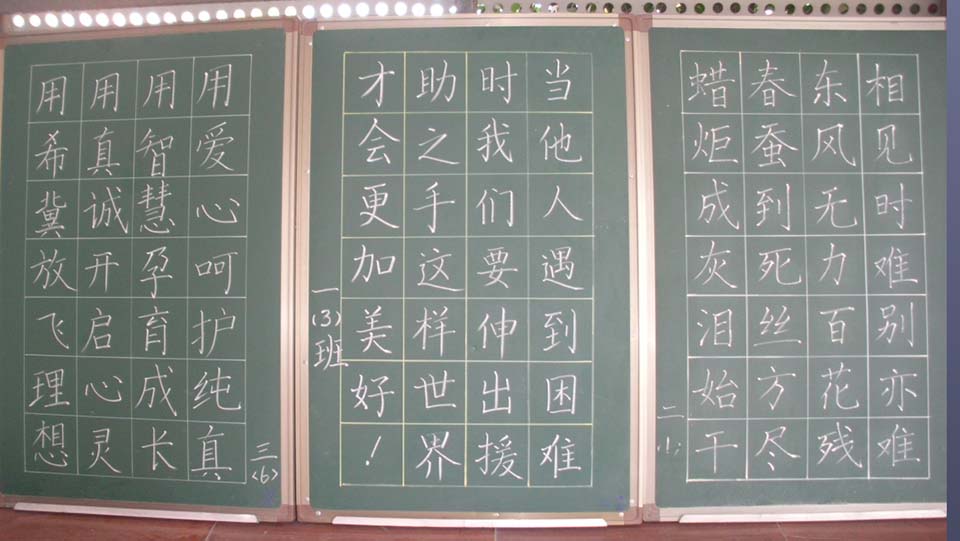 用爱心呵护纯真
用智慧孕育成长
用真诚开启心灵
用希冀放飞理想
三(6)
当他人遇到困难
时我们要伸出援
助之手这样世界
才会更加美好！
一(3)班
相见时难别亦难
东风无力百花残
春蚕到死丝方尽
蜡炬成灰泪始干
二(1)